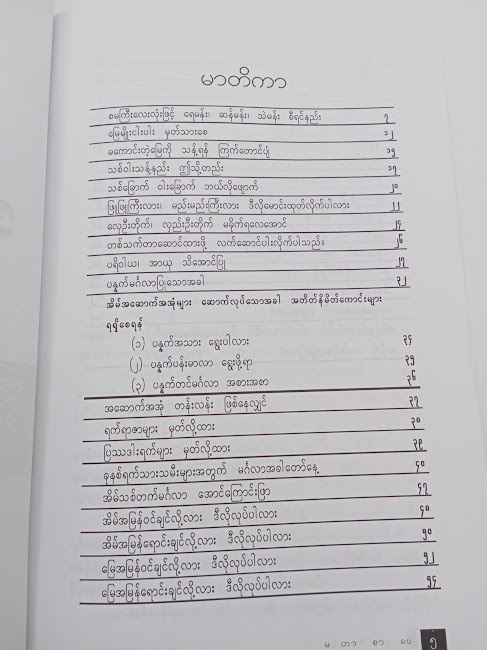 မာတိကာ
စမကြီးလေးလုံးဖြင့် ရေမန်း၊ ဆန်မန်း၊ သဲမန်း စီရင်နည်း ၇
မြေမျိုးငါးပါး မှတ်သားစေ ၁၂
မကောင်းတဲ့မြေကို သန့်ရန် ကြက်တောင်ပျံ ၁၅
သစ်ဝါးသန့်နည်း ဤသို့တည်း ၁၇
သစ်ခြောက် ဝါးခြောက် ဘယ်လိုဖျောက် ၂၁
ဖြူဖြူကြီးလား၊ မည်းမည်းကြီးလား ဒီလိုမောင်းထုတ်လိုက်ပါလား ၂၂
လေဦးတိုက်၊ လှည်းဦးတိုက် မခိုက်ရလေအောင် ၂၄
တစ်သက်တာဆောင်ထားဖို့ လက်ဆောင်ပါးလိုက်ပါသည်။ ၂၆
ပရိဝါယ၊ အာယု သိအောင်ပြု ၂၇
ပန္နက်မင်္ဂလာပြုသောအခါ ၃၂
အိမ်အဆောက်အအုံများ ဆောက်လုပ်သောအခါ အတိတ်နိမိတ်ကောင်းများ
ရရှိစေရန်
(၁) ပန္နက်အသား ရွေးပါလား ၃၄
(၂) ပန္နက်ပန်းမာလာ ရွေးဖို့ရာ ၃၅
(၃) ပန္နက်တင်မင်္ဂလာ အစားအစာ ၃၆
အဆောက်အအုံ တန်းလန်း ဖြစ်နေလျှင် ၃၇
ရက်ရာဇာများ မှတ်လို့ထား ၃၈
ပြဿဒါးရက်များ မှတ်လို့ထား ၃၉
ခုနစ်ရက်သားသမီးများအတွက် မင်္ဂလာအခါတော်နေ့ ၄၀
အိမ်သစ်တက်မင်္ဂလာ အောင်ကြောင်းဖြာ ၄၇
အိမ်အမြန်ဝင်ချင်လို့လား ဒီလိုလုပ်ပါလား ၄၈
အိမ်အမြန်ရောင်းချင်လို့လား ဒီလိုလုပ်ပါလား ၅၀
မြေအမြန်ဝင်ချင်လို့လား ဒီလိုလုပ်ပါလား ၅၂
မြေအမြန်ရောင်းချင်လို့လား ဒီလိုလုပ်ပါလား ၅၄
မ ဟာ စာ ပေ ၅